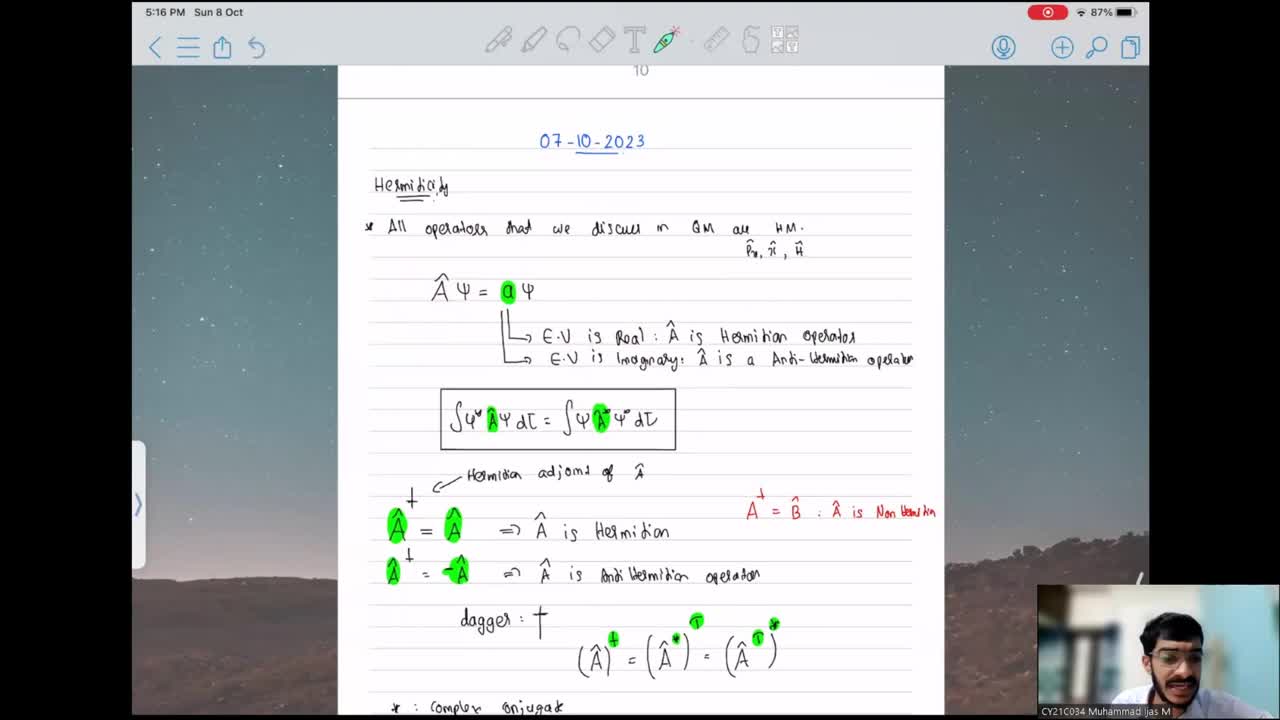 5:16 PM Sun 8 Oct
87%
10
07-10-2023
Hermiticity
* All operators that we discuss in QM are HM.
P̂x, x̂, Ĥ
Âψ = aψ
E.V is Real : Â is Hermitian operator
E.V is Imaginary: Â is a Anti-Hermitian operator
∫ψ* Â ψ dτ = ∫ψ Â* ψ* dτ
Hermitian adjoint of Â
Â† = Â ⇒ Â is Hermitian
A† = B̂ : Â is Non Hermitian
Â† = -Â ⇒ Â is Anti Hermitian operator
dagger : †
(Â)† = (Â*)ᵀ = (Âᵀ)*
* : Complex conjugate
CY21C034 Muhammad Ijas M